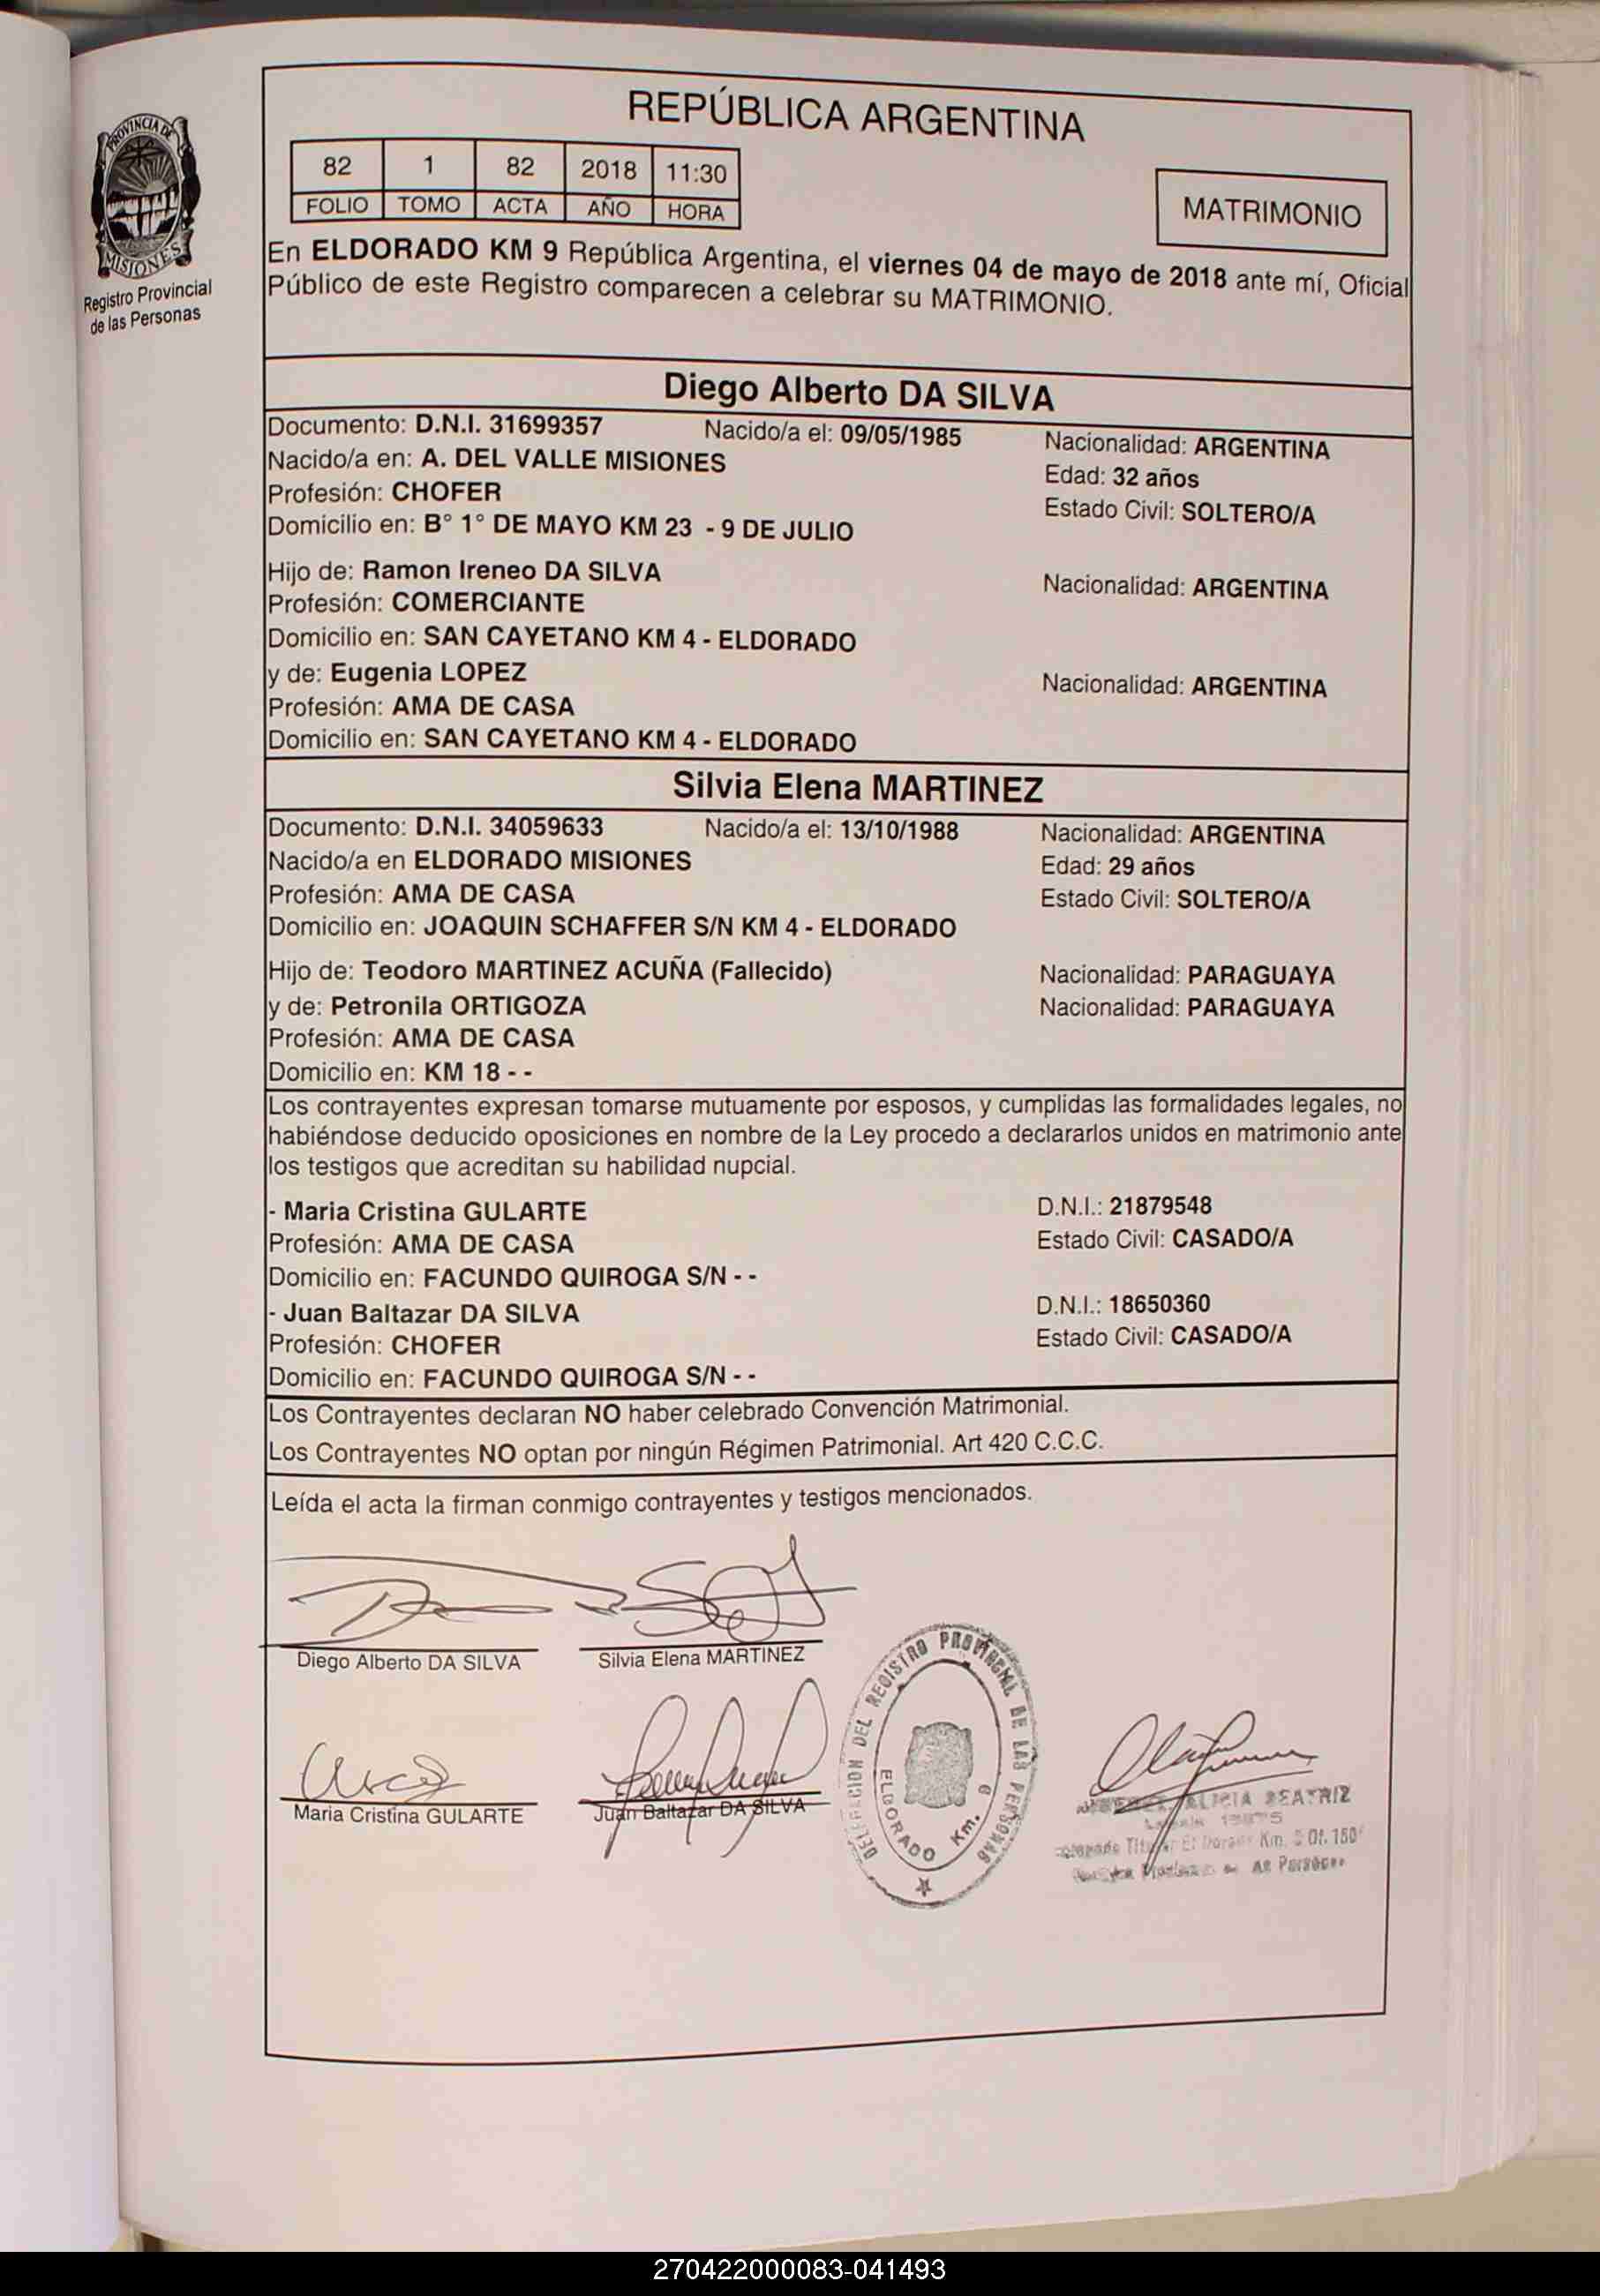 REPÚBLICA ARGENTINA
PROVINCIA DE
MISIONES
Registro Provincial
de las Personas
82 1 82 2018 11:30
FOLIO TOMO ACTA AÑO HORA
MATRIMONIO
En ELDORADO KM 9 República Argentina, el viernes 04 de mayo de 2018 ante mí, Oficial
Público de este Registro comparecen a celebrar su MATRIMONIO.
Diego Alberto DA SILVA
Documento: D.N.I. 31699357 Nacido/a el: 09/05/1985 Nacionalidad: ARGENTINA
Nacido/a en: A. DEL VALLE MISIONES Edad: 32 años
Profesión: CHOFER Estado Civil: SOLTERO/A
Domicilio en: B° 1° DE MAYO KM 23 - 9 DE JULIO
Hijo de: Ramon Ireneo DA SILVA Nacionalidad: ARGENTINA
Profesión: COMERCIANTE
Domicilio en: SAN CAYETANO KM 4 - ELDORADO
y de: Eugenia LOPEZ Nacionalidad: ARGENTINA
Profesión: AMA DE CASA
Domicilio en: SAN CAYETANO KM 4 - ELDORADO
Silvia Elena MARTINEZ
Documento: D.N.I. 34059633 Nacido/a el: 13/10/1988 Nacionalidad: ARGENTINA
Nacido/a en ELDORADO MISIONES Edad: 29 años
Profesión: AMA DE CASA Estado Civil: SOLTERO/A
Domicilio en: JOAQUIN SCHAFFER S/N KM 4 - ELDORADO
Hijo de: Teodoro MARTINEZ ACUÑA (Fallecido) Nacionalidad: PARAGUAYA
y de: Petronila ORTIGOZA Nacionalidad: PARAGUAYA
Profesión: AMA DE CASA
Domicilio en: KM 18 - -
Los contrayentes expresan tomarse mutuamente por esposos, y cumplidas las formalidades legales, no
habiéndose deducido oposiciones en nombre de la Ley procedo a declararlos unidos en matrimonio ante
los testigos que acreditan su habilidad nupcial.
- Maria Cristina GULARTE D.N.I.: 21879548
Profesión: AMA DE CASA Estado Civil: CASADO/A
Domicilio en: FACUNDO QUIROGA S/N - -
- Juan Baltazar DA SILVA D.N.I.: 18650360
Profesión: CHOFER Estado Civil: CASADO/A
Domicilio en: FACUNDO QUIROGA S/N - -
Los Contrayentes declaran NO haber celebrado Convención Matrimonial.
Los Contrayentes NO optan por ningún Régimen Patrimonial. Art 420 C.C.C.
Leída el acta la firman conmigo contrayentes y testigos mencionados.
Diego Alberto DA SILVA Silvia Elena MARTINEZ
Maria Cristina GULARTE Juan Baltazar DA SILVA
DELEGACION DEL REGISTRO PROVINCIAL DE LAS PERSONAS
ELDORADO Km. 9
ALICIA BEATRIZ
270422000083-041493